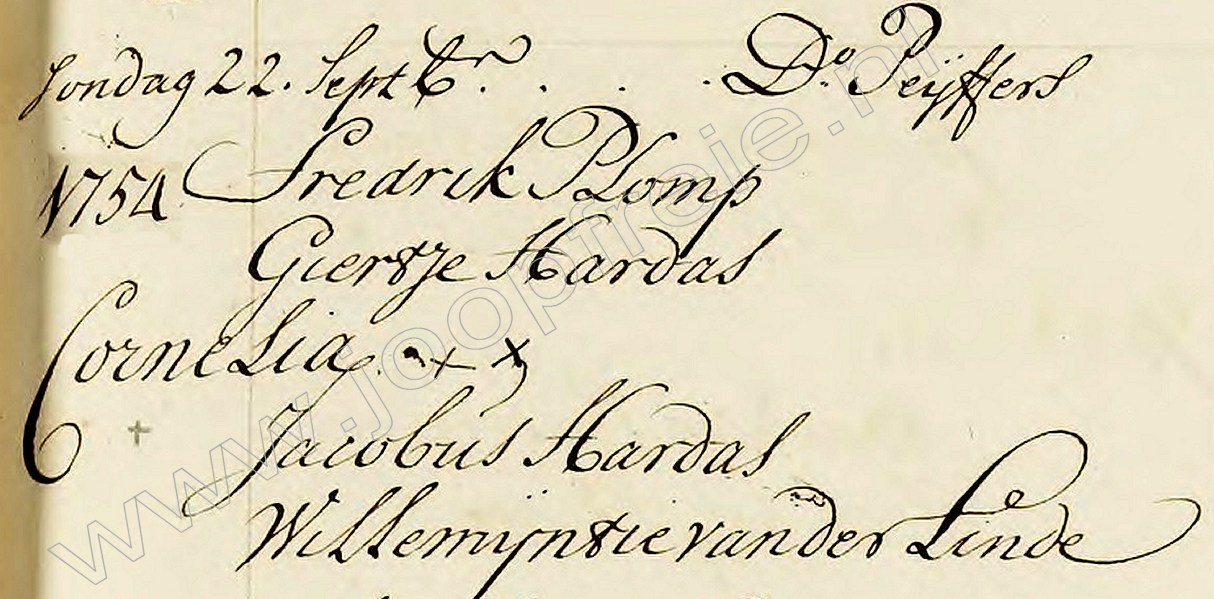 Sondag 22. Septbr. . . . Do. Peijffers
1754 Fredrik Plomp
Giertje Hardas
Cornelia
Jacobus Hardas
Willemijntie van der Linde
www.joopfreie.nl